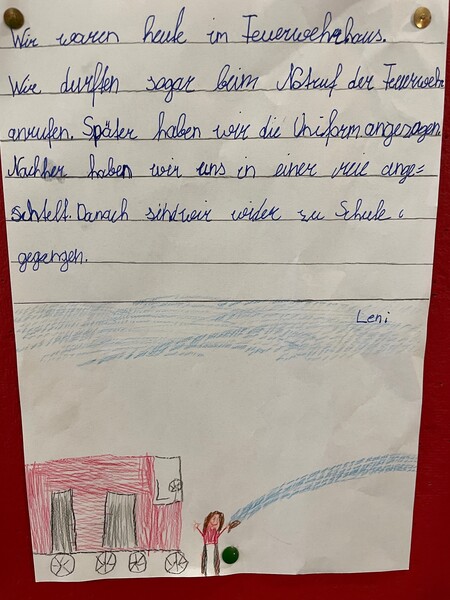 Wir waren heute im Feuerwehrhaus.
Wir durften sogar beim Notruf der Feuerwehr
anrufen. Später haben wir die Uniform angezogen.
Nachher haben wir uns in einer reie ange=
schtelt. Danach sind wir wider zu Schule
gegangen.
Leni